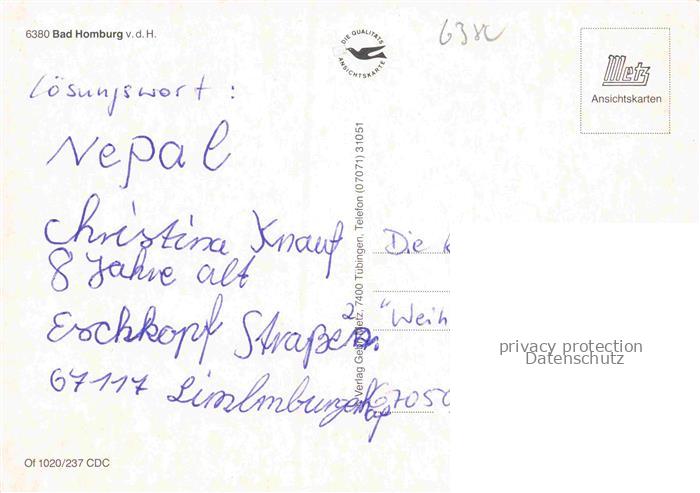 6380 Bad Homburg v. d. H.
DIE QUALITÄTS
ANSICHTSKARTE
6380
Metz
Ansichtskarten
Lösungswort :
Nepal
Christina Knauf
8 Jahre alt
Eschkopf Straße
67117
Verlag Gebr. Metz, 7400 Tübingen, Telefon (07071) 31051
Die
"Weih
6705
privacy protection
Datenschutz
Of 1020/237 CDC